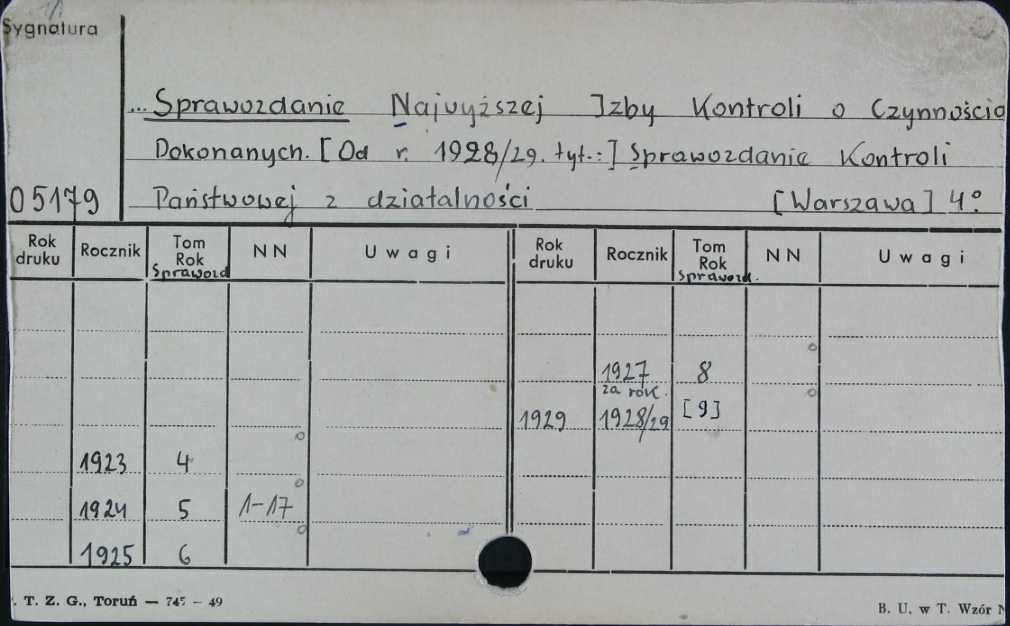 Sygnatura
... Sprawozdanie Najwyższej Izby Kontroli o Czynnościa
Dokonanych. [Od r. 1928/29. tyt.:] Sprawozdanie Kontroli
05179 Państwowej z działalności [Warszawa] 4º.
Rok druku Rocznik Tom Rok Sprawozd NN Uwagi Rok druku Rocznik Tom Rok Sprawozd. NN Uwagi
1927 8
za rok.
1929 1928/29 [9]
1923 4
1924 5 1-17
1925 6
. T. Z. G., Toruń — 745 — 49 B. U. w T. Wzór N